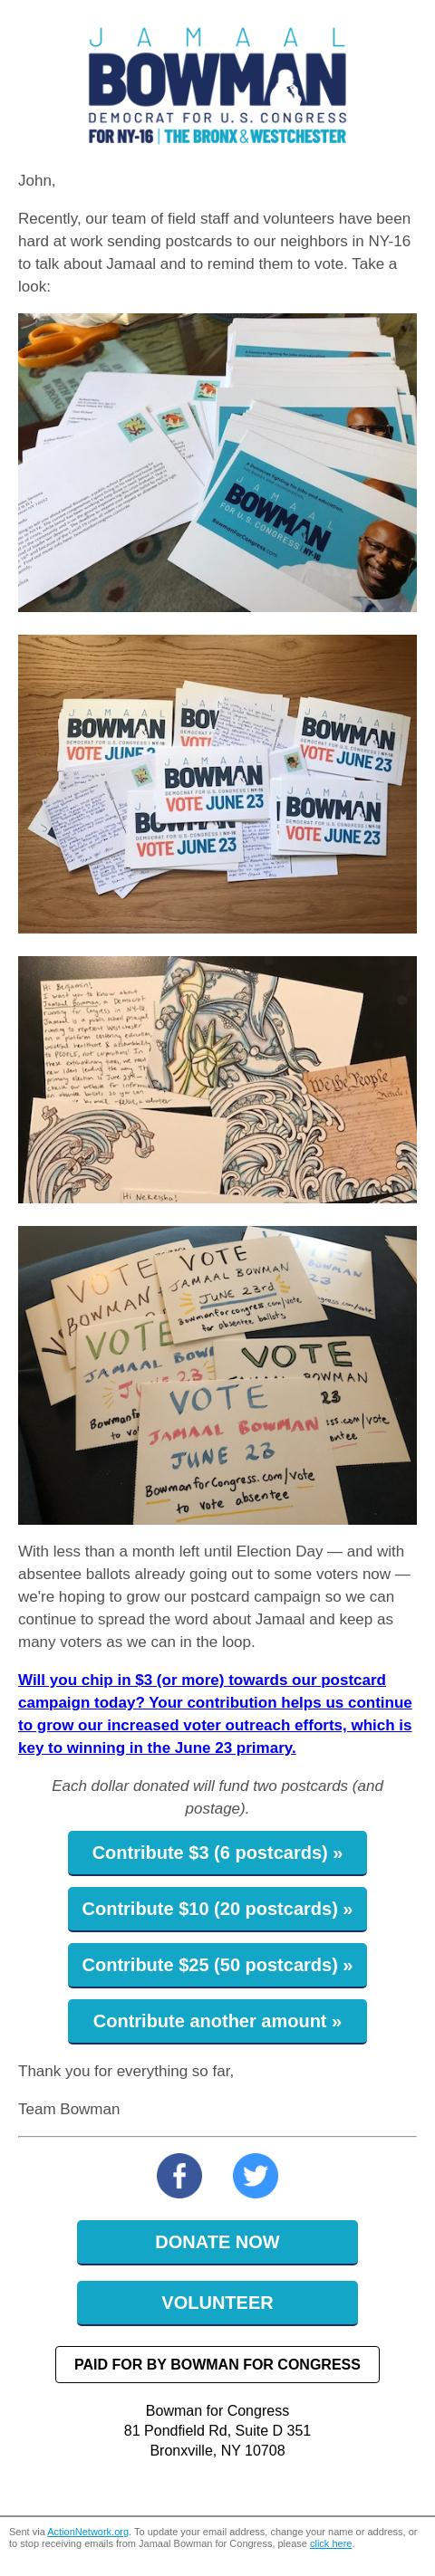 JAMAAL
BOWMAN
DEMOCRAT FOR U.S. CONGRESS
FOR NY-16 | THE BRONX & WESTCHESTER
John,
Recently, our team of field staff and volunteers have been
hard at work sending postcards to our neighbors in NY-16
to talk about Jamaal and to remind them to vote. Take a
look:
JAMAAL
BOWMAN
FOR U.S. CONGRESS NY-16
BowmanForCongress.com
JAMAAL
BOWMAN
DEMOCRAT FOR U.S. CONGRESS | NY-16
VOTE JUNE 2
BOWMAN
VOTE JUNE 23
JAMAAL
BOWMAN
DEMOCRAT FOR U.S. CONGRESS | NY-16
VOTE JUNE 23
BOWMAN
VOTE JUNE 23
BOWMAN
VOTE JUNE 23
Hi Benjamin!
I want you to know about
Jamaal Bowman, a Democrat
running for Congress in NY-16
We the People
Hi Nekeisha!
VOTE
BOWMAN
VOTE
JAMAAL BOWMAN
JUNE 23rd
Bowmanforcongress.com/vote
for absentee ballots
VOTE
JAMAAL BOWM
VOTE
23
VOTE
JAMAAL BOWMAN
JUNE 23
BowmanforCongress.com/vote
to vote absentee
With less than a month left until Election Day — and with
absentee ballots already going out to some voters now —
we're hoping to grow our postcard campaign so we can
continue to spread the word about Jamaal and keep as
many voters as we can in the loop.
Will you chip in $3 (or more) towards our postcard
campaign today? Your contribution helps us continue
to grow our increased voter outreach efforts, which is
key to winning in the June 23 primary.
Each dollar donated will fund two postcards (and
postage).
Contribute $3 (6 postcards) »
Contribute $10 (20 postcards) »
Contribute $25 (50 postcards) »
Contribute another amount »
Thank you for everything so far,
Team Bowman
DONATE NOW
VOLUNTEER
PAID FOR BY BOWMAN FOR CONGRESS
Bowman for Congress
81 Pondfield Rd, Suite D 351
Bronxville, NY 10708
Sent via ActionNetwork.org. To update your email address, change your name or address, or
to stop receiving emails from Jamaal Bowman for Congress, please click here.